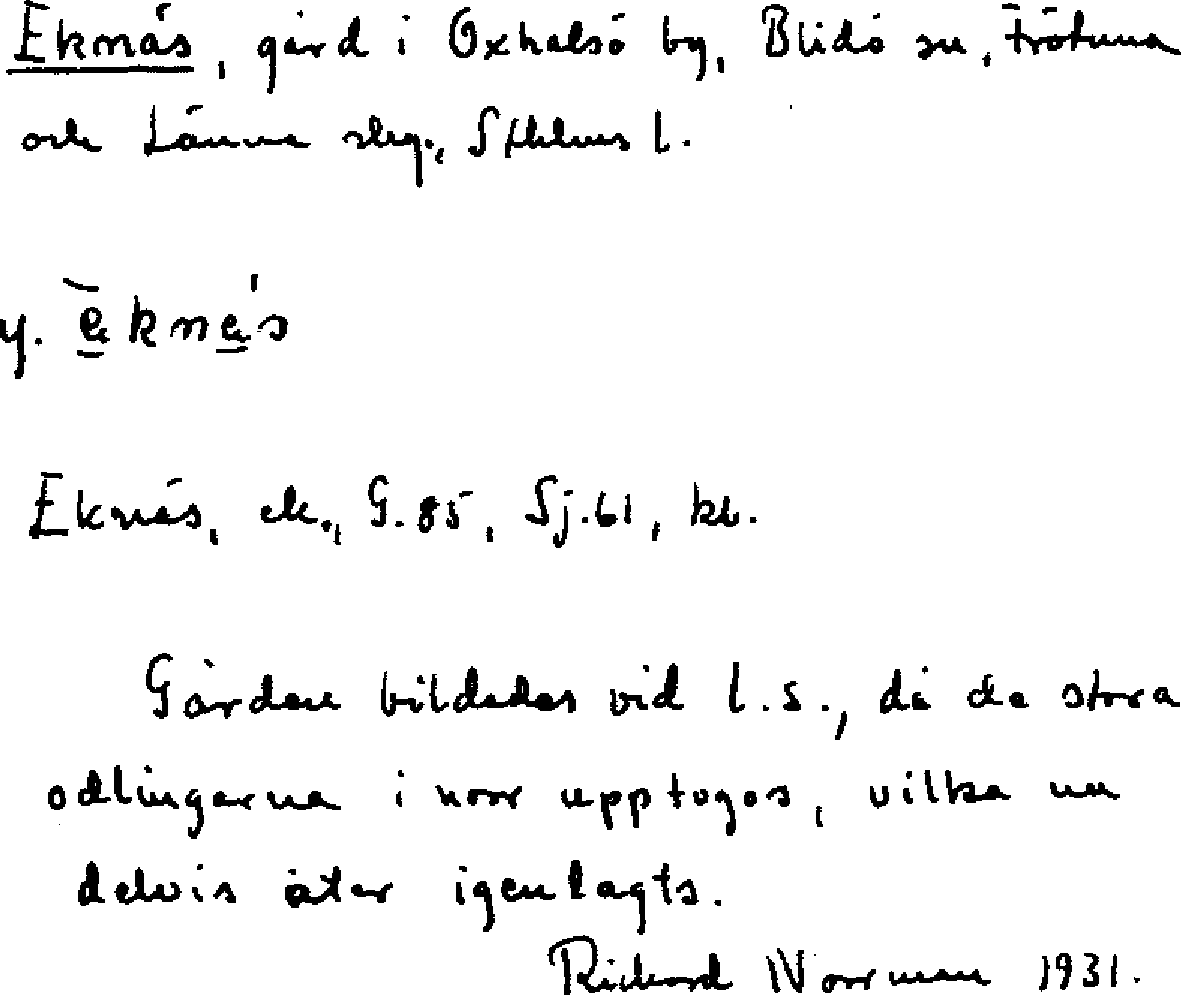 Eknäs, gård i Oxhalsö by, Blidö sn, Frötuna
och Länna skg., Sthlms l.
y. èknä's
Eknäs, ek., G. 85, Sj. 61, kb.
Gården bildades vid l.s., då de stora
odlingarna i norr upptogos, vilka nu
delvis åter igenlagts.
Richard Norrman 1931.